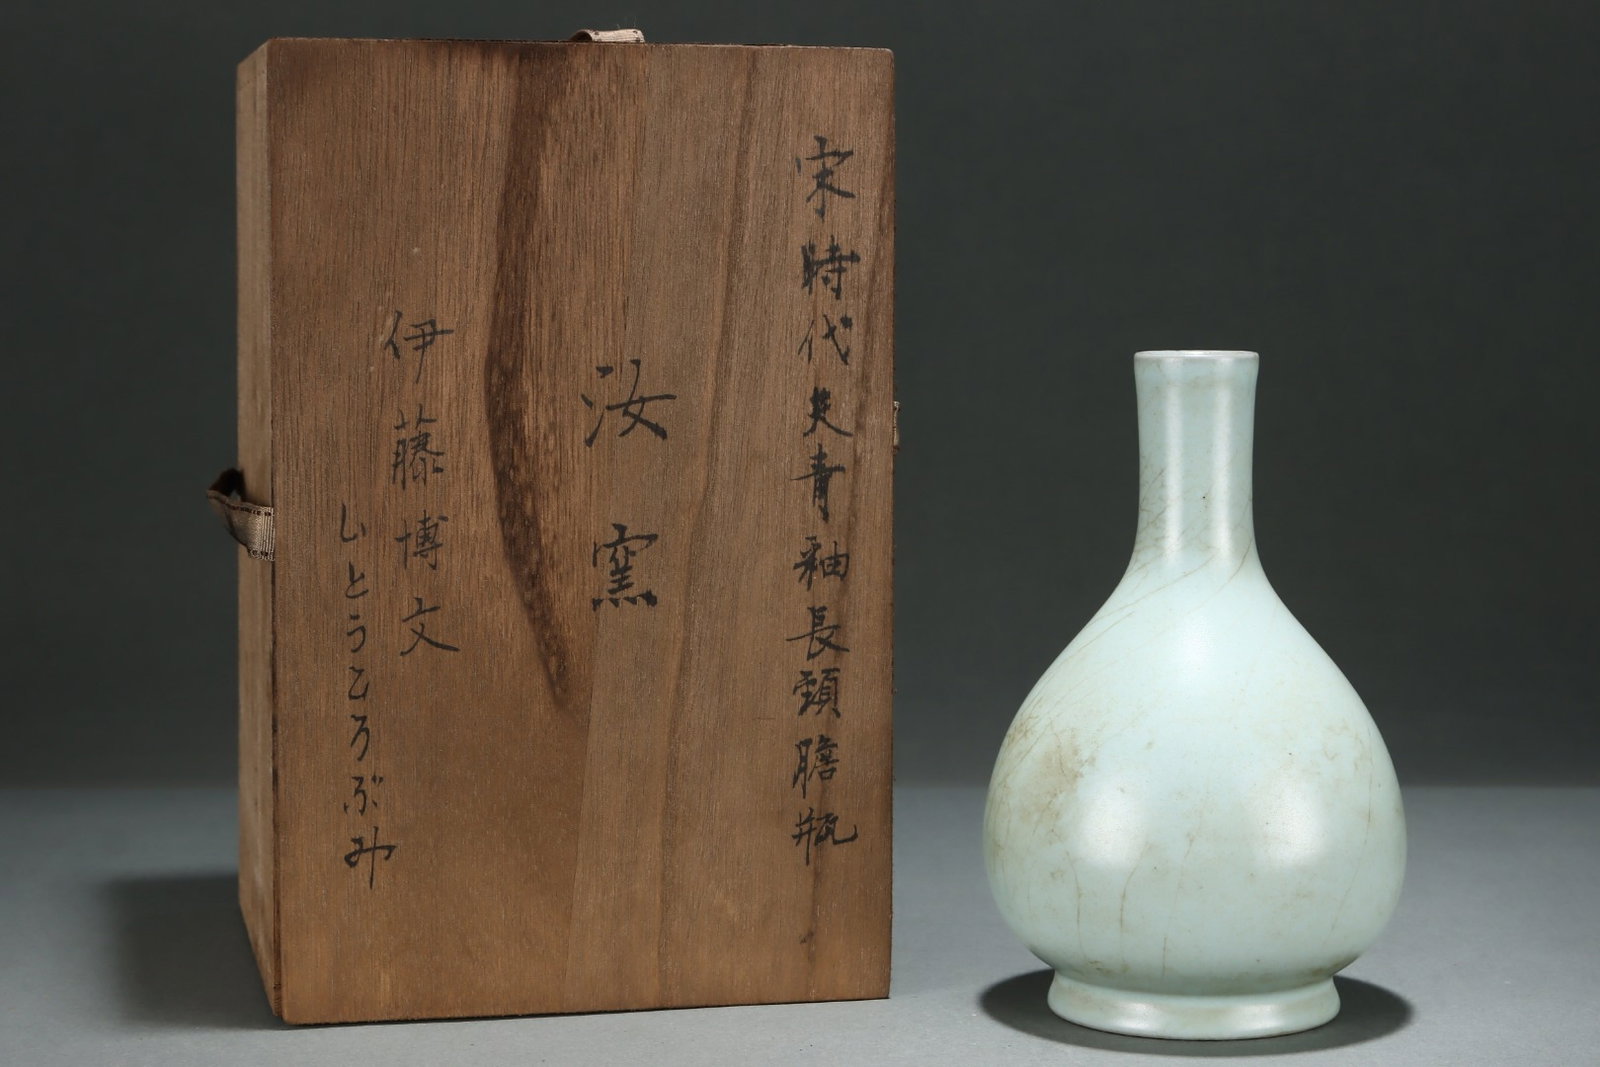 宋時代天青釉長頸膽瓶
汝窯
伊藤博文
いとうひろぶみ